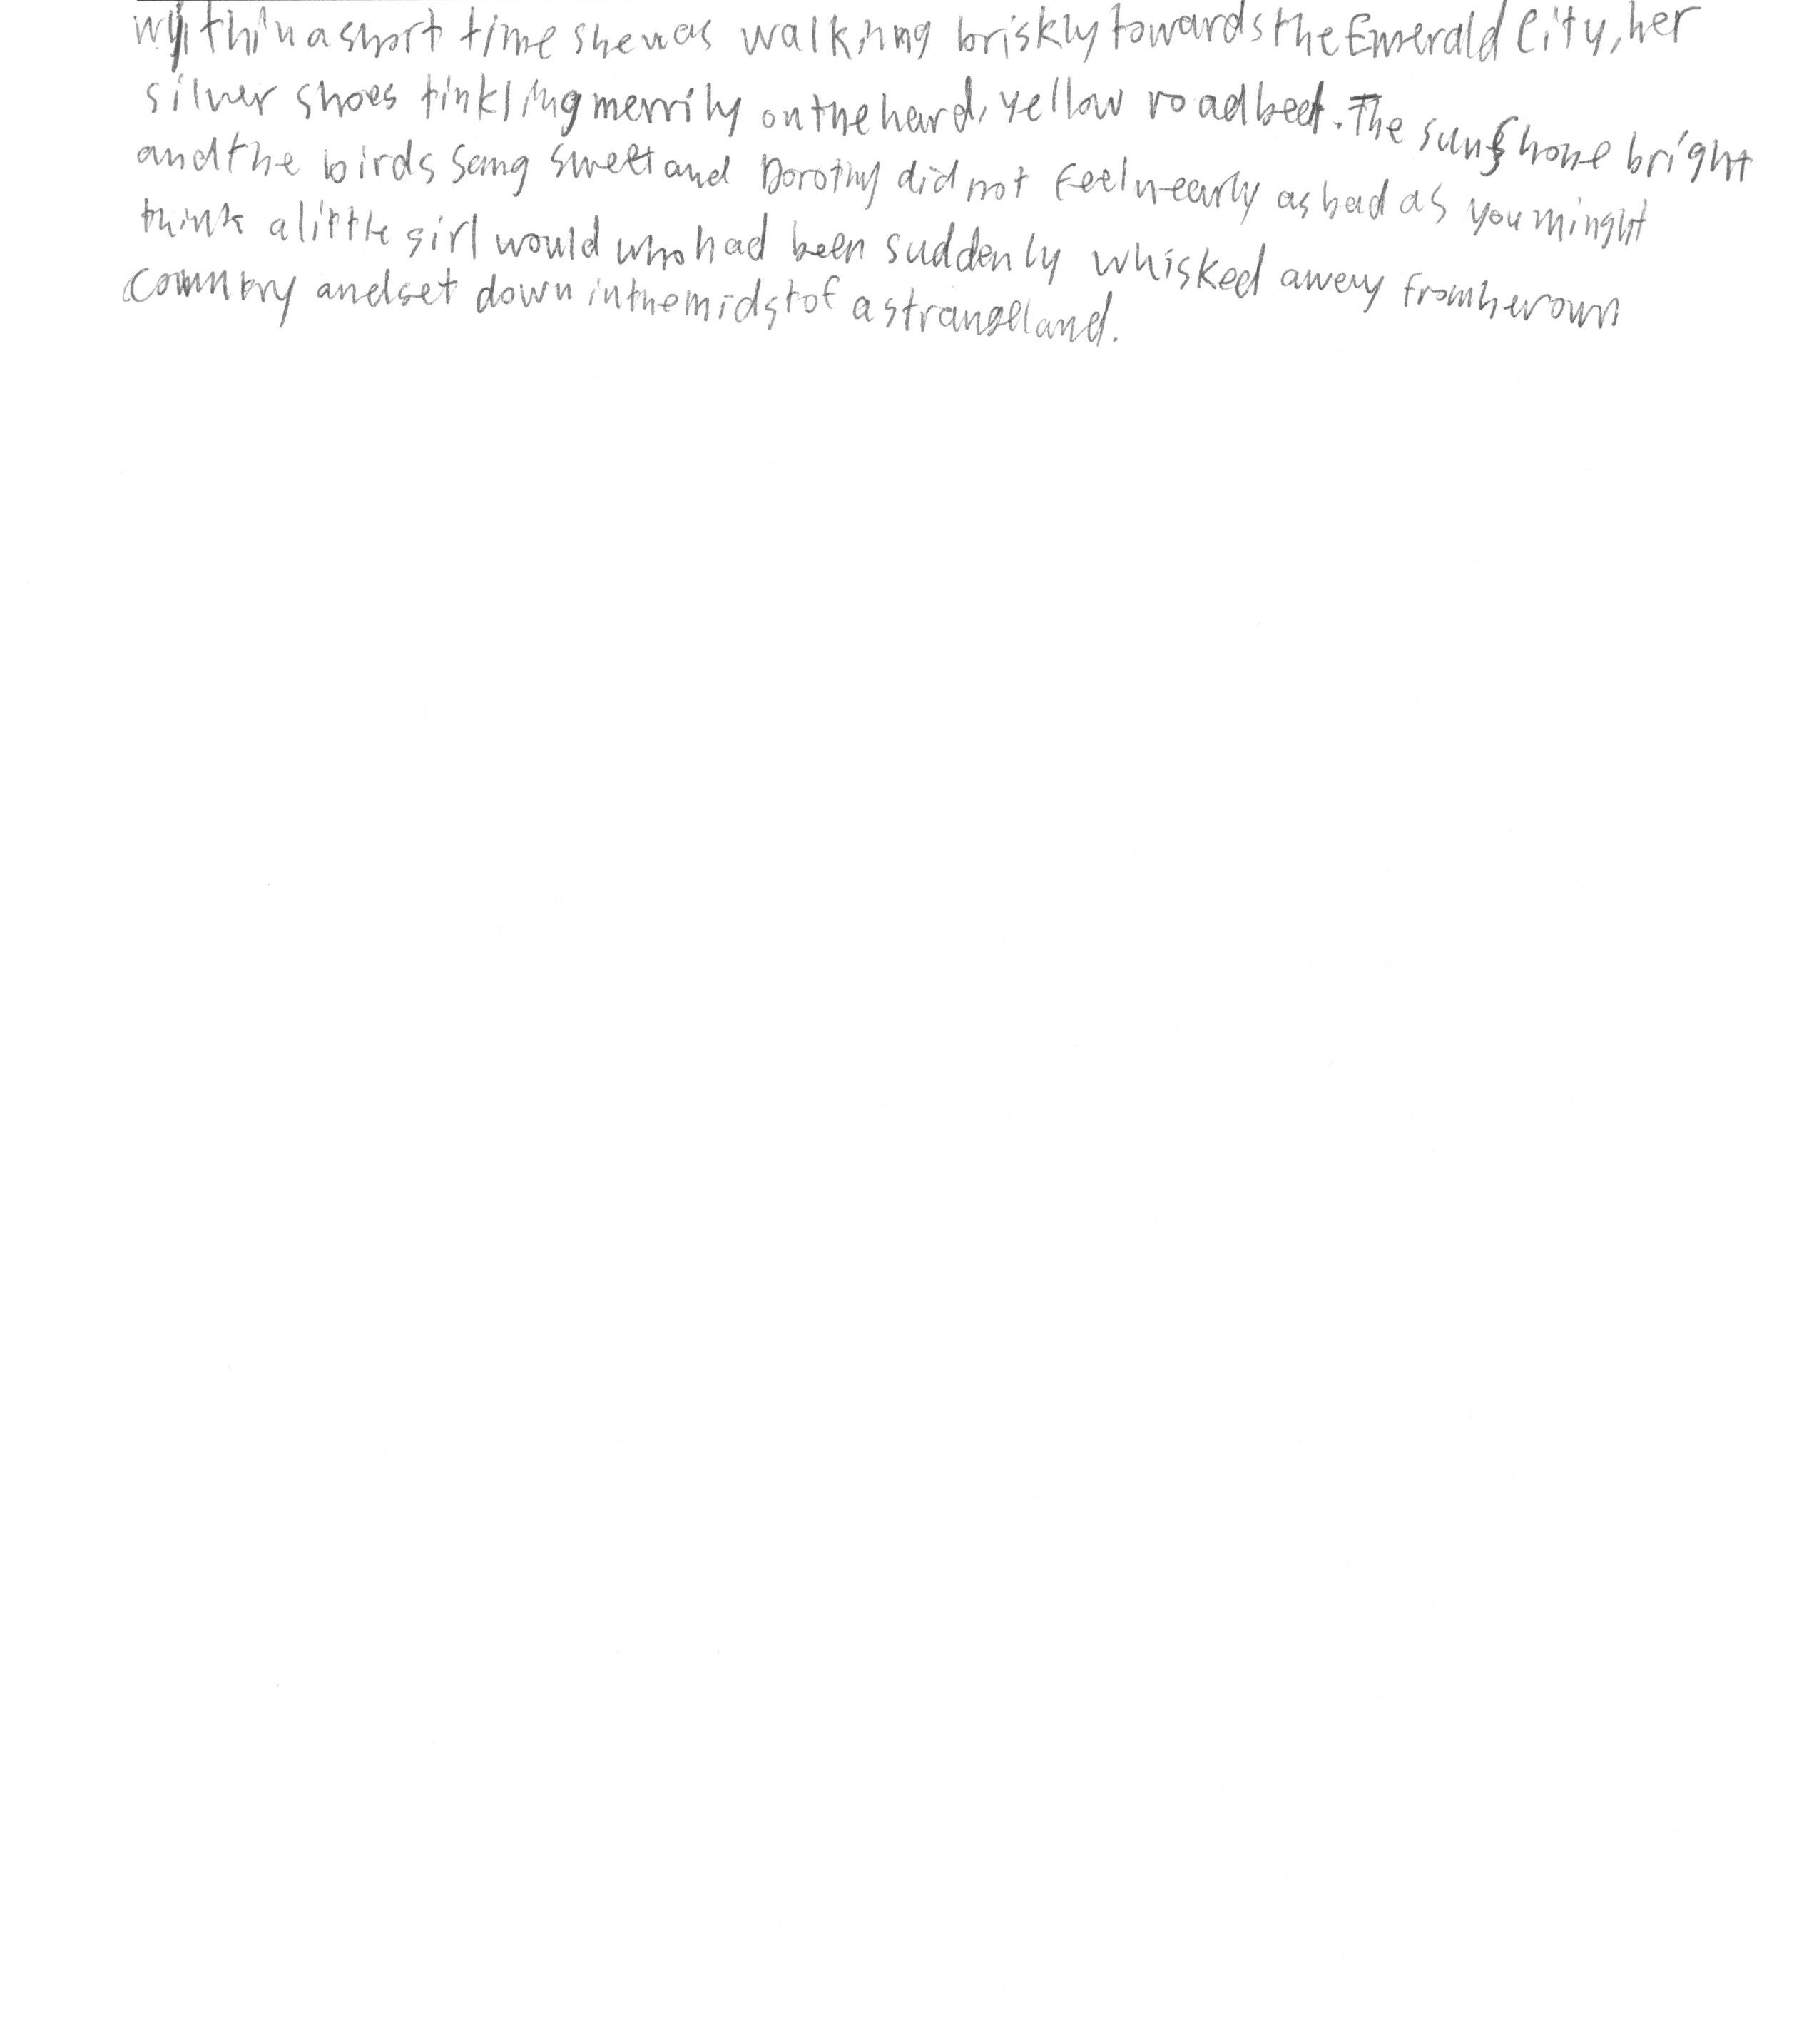 within a short time she was walking briskly towards the Emerald City, her
silver shoes tinkling merrily on the hard, yellow roadbed. The sun shone bright
and the birds sang sweet and Dorothy did not feel nearly as bad as you minght
think a little girl would who had been suddenly whisked away from her own
country and set down in the midst of a strange land.